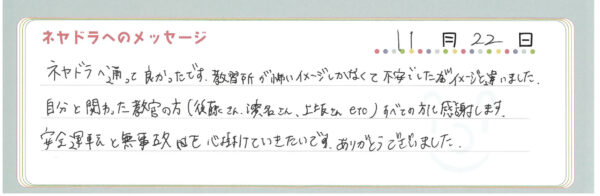 ネヤドラへのメッセージ
11月22日
ネヤドラへ通って良かったです。教習所が怖いイメージしかなくて不安でしたがイメージと違いました。
自分と関わった教官の方(後藤さん、濱名さん、上坂さん etc)すべての方に感謝します。
安全運転と無事故を心掛けていきたいです。ありがとうございました。